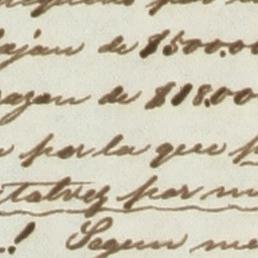 bajan de $500.00
razon de $118.00
por la que p
talvez por m
! Segun me